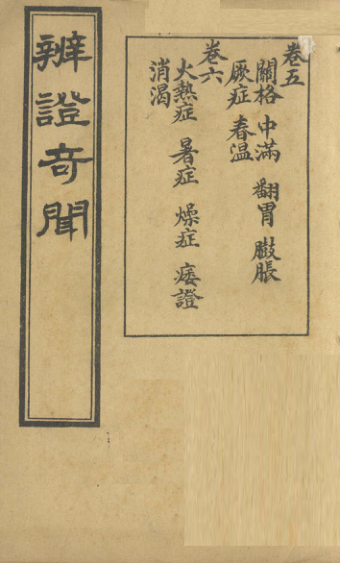 辨證奇聞
卷五
關格 中滿 翻胃 臌脹
厥症 春温
卷六
火熱症 暑症 燥症 痿證
消渴